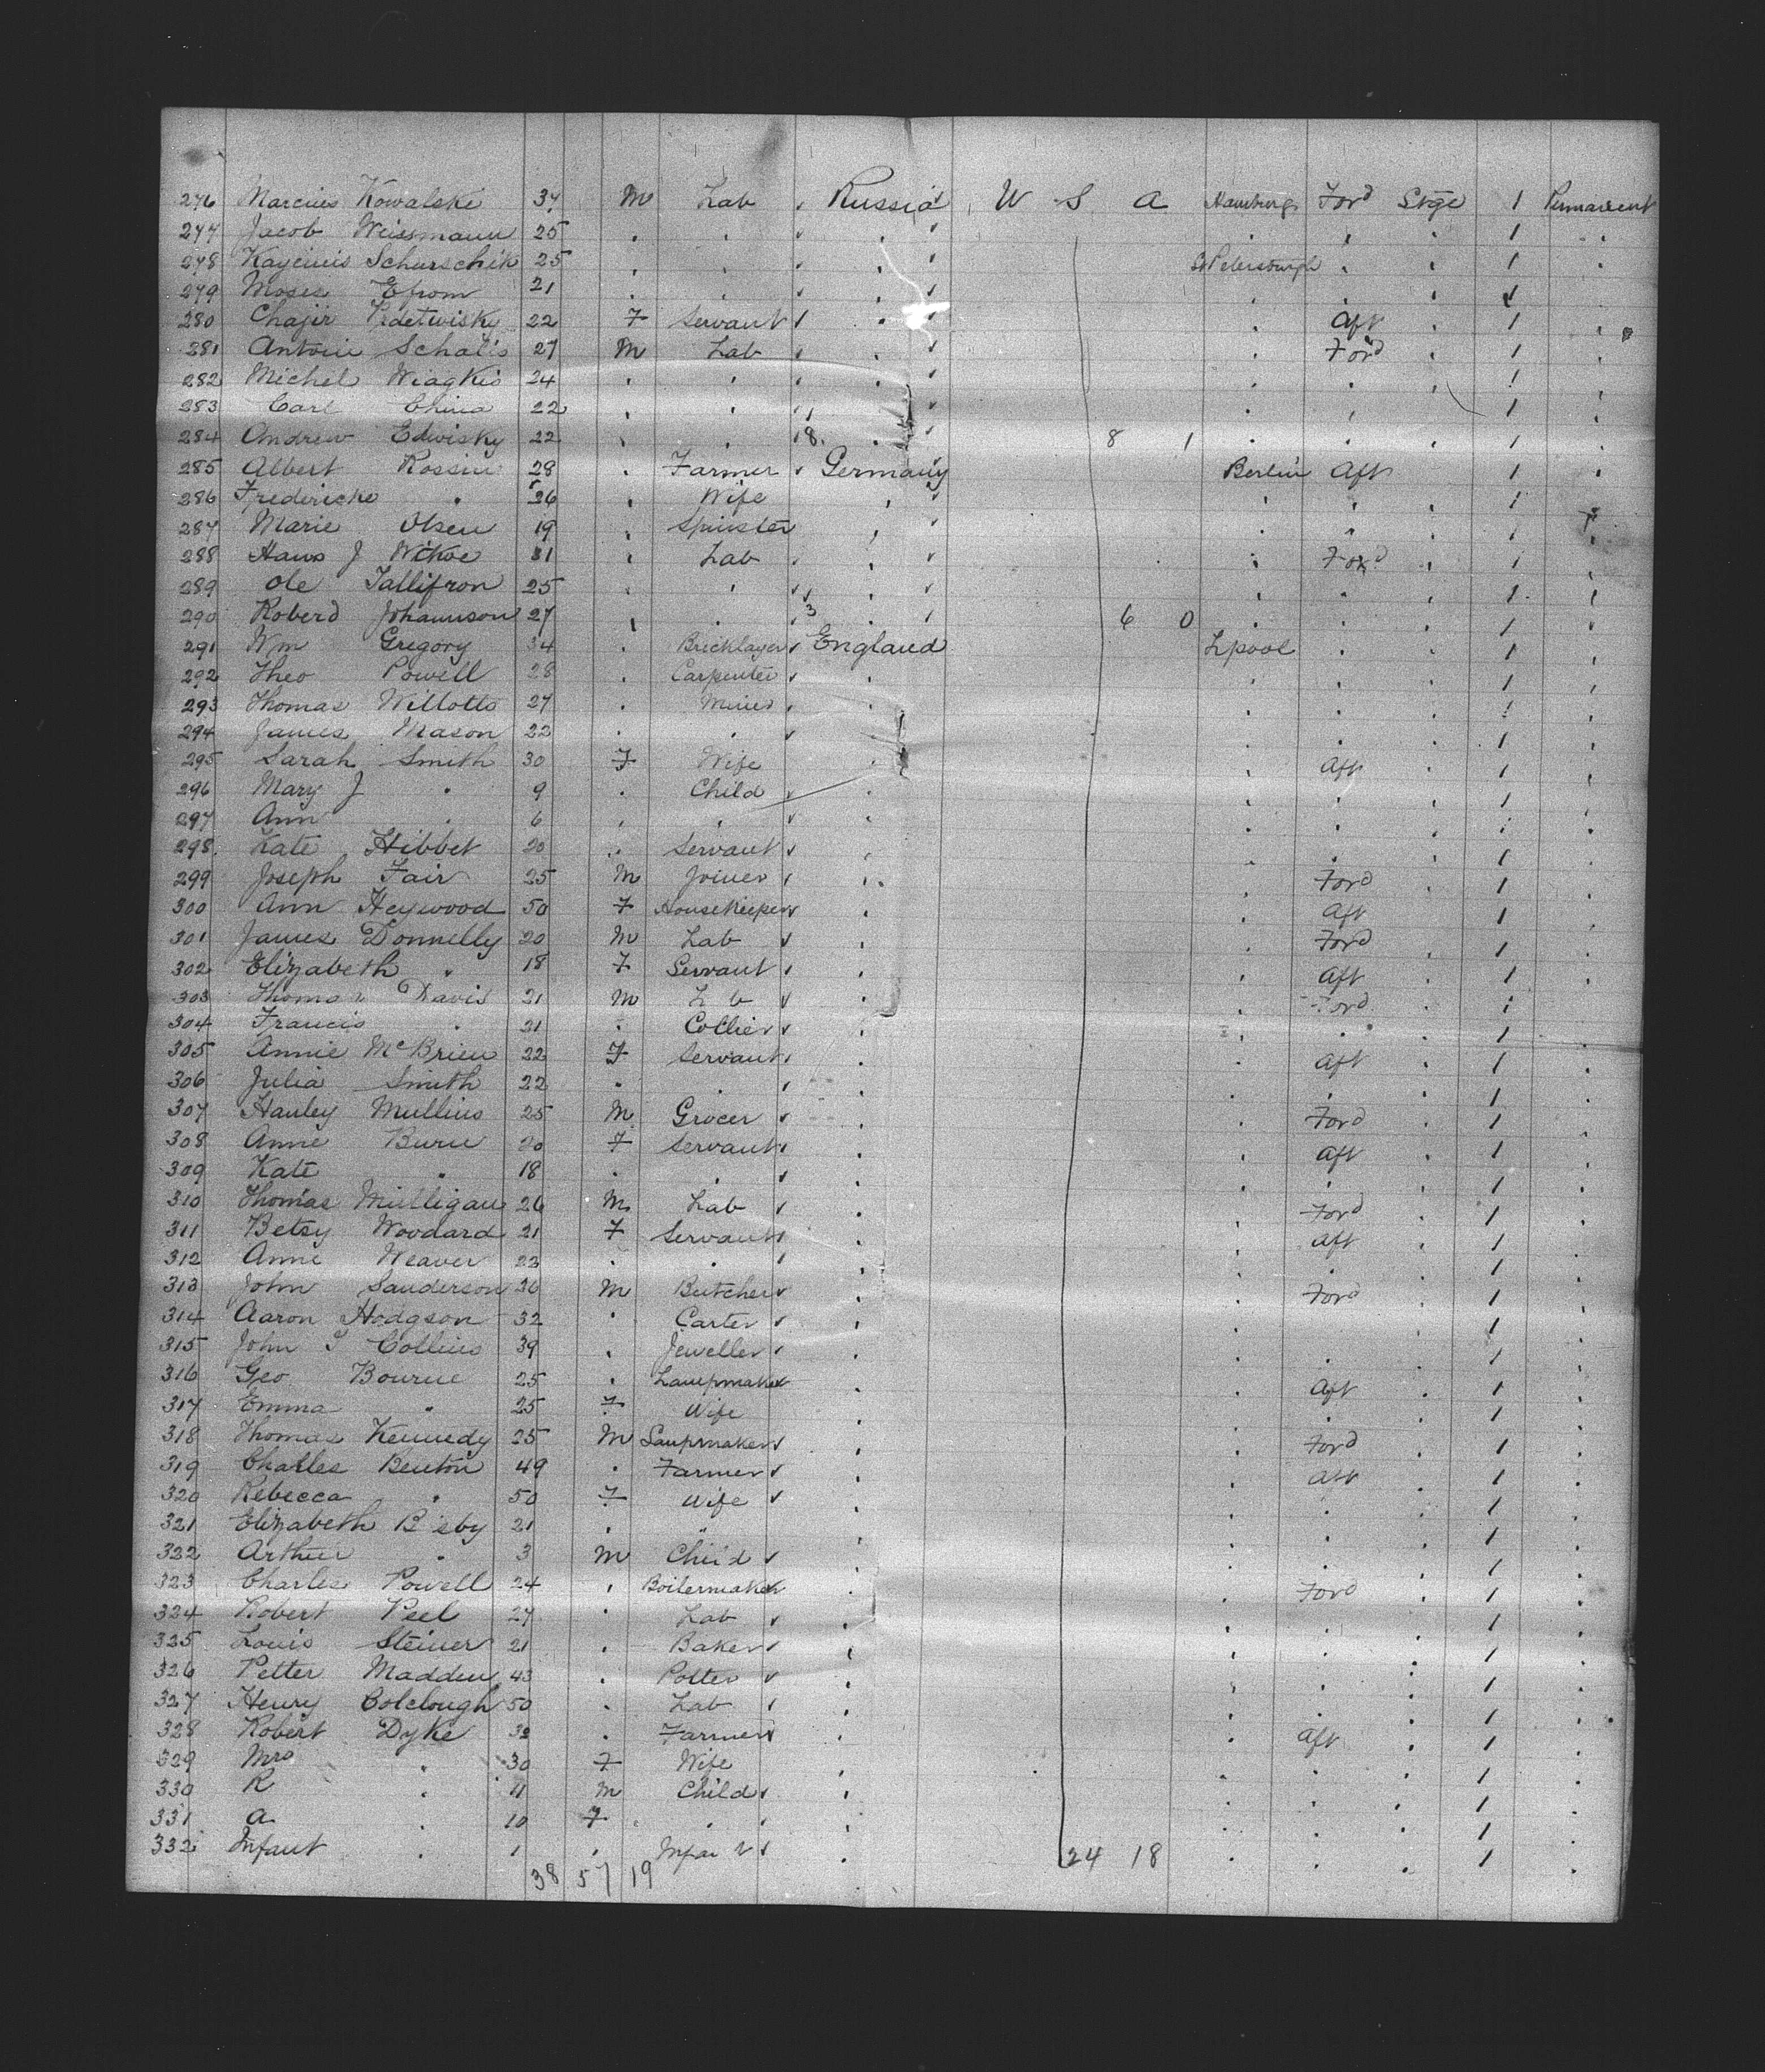 276 Marcius Kowalske 34 M Lab Russia U S A Hamburg Ford Stge 1 Permanent
277 Jacob Weissmann 25 . . . . . . 1 .
278 Schurschik 25 . . . St Petersburgh . . 1 .
279 Moses Efrom 21 . . . . . . 1 .
280 Chajir 22 F Servant . . Aft . 1 .
281 Antoin Schalis 27 M Lab . . Ford . 1
282 Michel Wiagkis 24 . . . . . . 1 .
283 Carl China 22 . . . . . 1 .
284 Andrew Edwisky 22 . . 8 . 8 1 . . . 1 .
285 Albert Rossin 28 . Farmer Germany Berlin Aft 1 .
286 Fredericke " 26 . Wife . . . . 1 .
287 Marie Olsen 19 . Spinster . . . . 1 .
288 Hans J Wikoe 31 . Lab . . Ford . 1 .
289 Ole Tallifron 25 . . . . . . 1 .
290 Roberd Johannson 27 . . 3 . 6 0 . . . 1 .
291 Wm Gregory 34 . Bricklayer England Lpool . . 1 .
292 Theo Powell 28 . Carpenter . . . . 1 .
293 Thomas Willotts 27 . Miner . . . . 1 .
294 James Mason 22 . . . . . . 1 .
295 Sarah Smith 30 F Wife . . Aft . 1 .
296 Mary J " 9 . Child . . . . 1 .
297 Ann " 6 . . . . . . 1 .
298 Kate Hibbet 20 . Servant . . . . 1 .
299 Joseph Fair 25 M Joiner . . Ford . 1
300 Ann Heywood 50 F Housekeeper . . Aft 1 .
301 James Donnelly 20 M Lab . . Ford . 1 .
302 Elizabeth " 18 F Servant . . Aft . 1 .
303 Thomas Davis 21 M L b . . Ford . 1
304 Francis " 21 . Collier . . . . 1 .
305 Annie McBrien 22 F Servant . . Aft . 1 .
306 Julia Smith 22 . . . . . . 1 .
307 Hanley Mullins 25 M Grocer . . Ford . 1 .
308 Anne Burn 20 F Servant . . Aft . 1 .
309 Kate " 18 . . . . . . 1 .
310 Thomas Mulligan 26 M Lab . . Ford . 1 .
311 Betsy Woodard 21 F Servant . . Aft . 1 .
312 Anne Weaver 23 . . . . . . 1 .
313 John Sanderson 26 M Butcher . . Ford . 1 .
314 Aaron Hodgson 32 . Carter . . . . 1 .
315 John T Collins 39 . Jeweller . . . . 1 .
316 Geo Bourne 25 . Lampmaker . . Aft . 1 .
317 Emma " 25 F Wife . . . . 1 .
318 Thomas Kennedy 25 M Lampmaker . . Ford . 1 .
319 Charles Benton 49 . Farmer . . Aft . 1 .
320 Rebecca " 50 F Wife . . . . 1 .
321 Elizabeth B sby 21 . " . . . . 1 .
322 Arthur " 3 M Child . . . . 1 .
323 Charles Powell 24 . Boilermaker . . Ford . 1 .
324 Robert Peel 27 . Lab . . . . 1 .
325 Louis Steiner 21 . Baker . . . . 1 .
326 Petter Madden 43 . Potter . . . . 1 .
327 Henry Colclough 50 . Lab . . . . 1 .
328 Robert Dyke 32 . Farmer . . Aft . 1 .
329 Mrs " 30 F Wife . . . . 1 .
330 R " 11 M Child . . . . 1 .
331 A " 10 F . . . . . 1 .
332 Infant . 1 . Infan t . 24 18 . . . 1 .
38 57 19